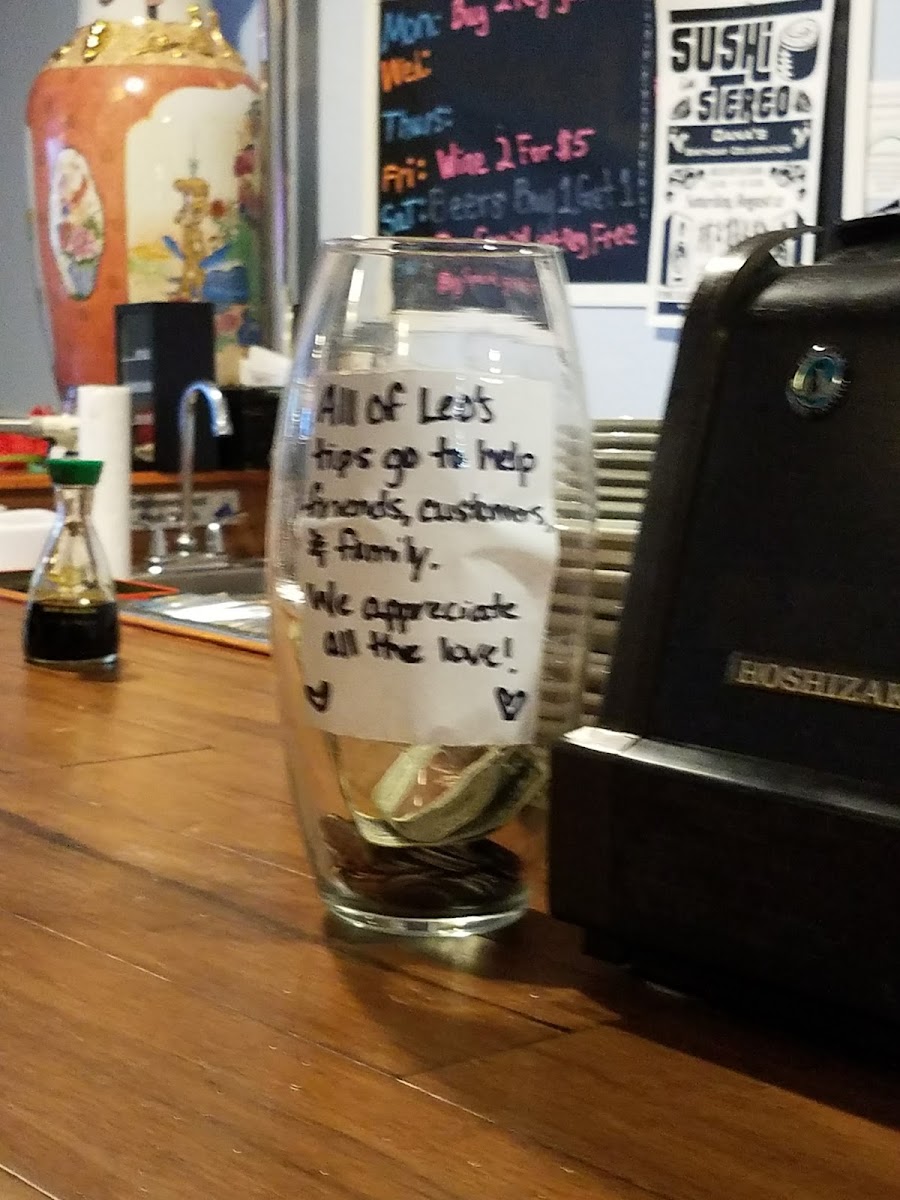 Mon: Buy
Wed:
Thurs:
Fri: Wine 2 For $5
Sat: Beers Buy 1 Get 1
Free
SUSHi
STEREO
All of Leo's
tips go to help
friends, customers,
& family.
We appreciate
all the love!
HOSHIZAK